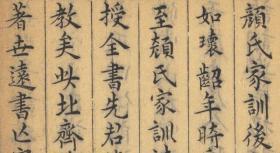 顔氏家訓後
如瓌齠年時
至顔氏家訓
授全書先君
教矣此北齊
著世遠書亡